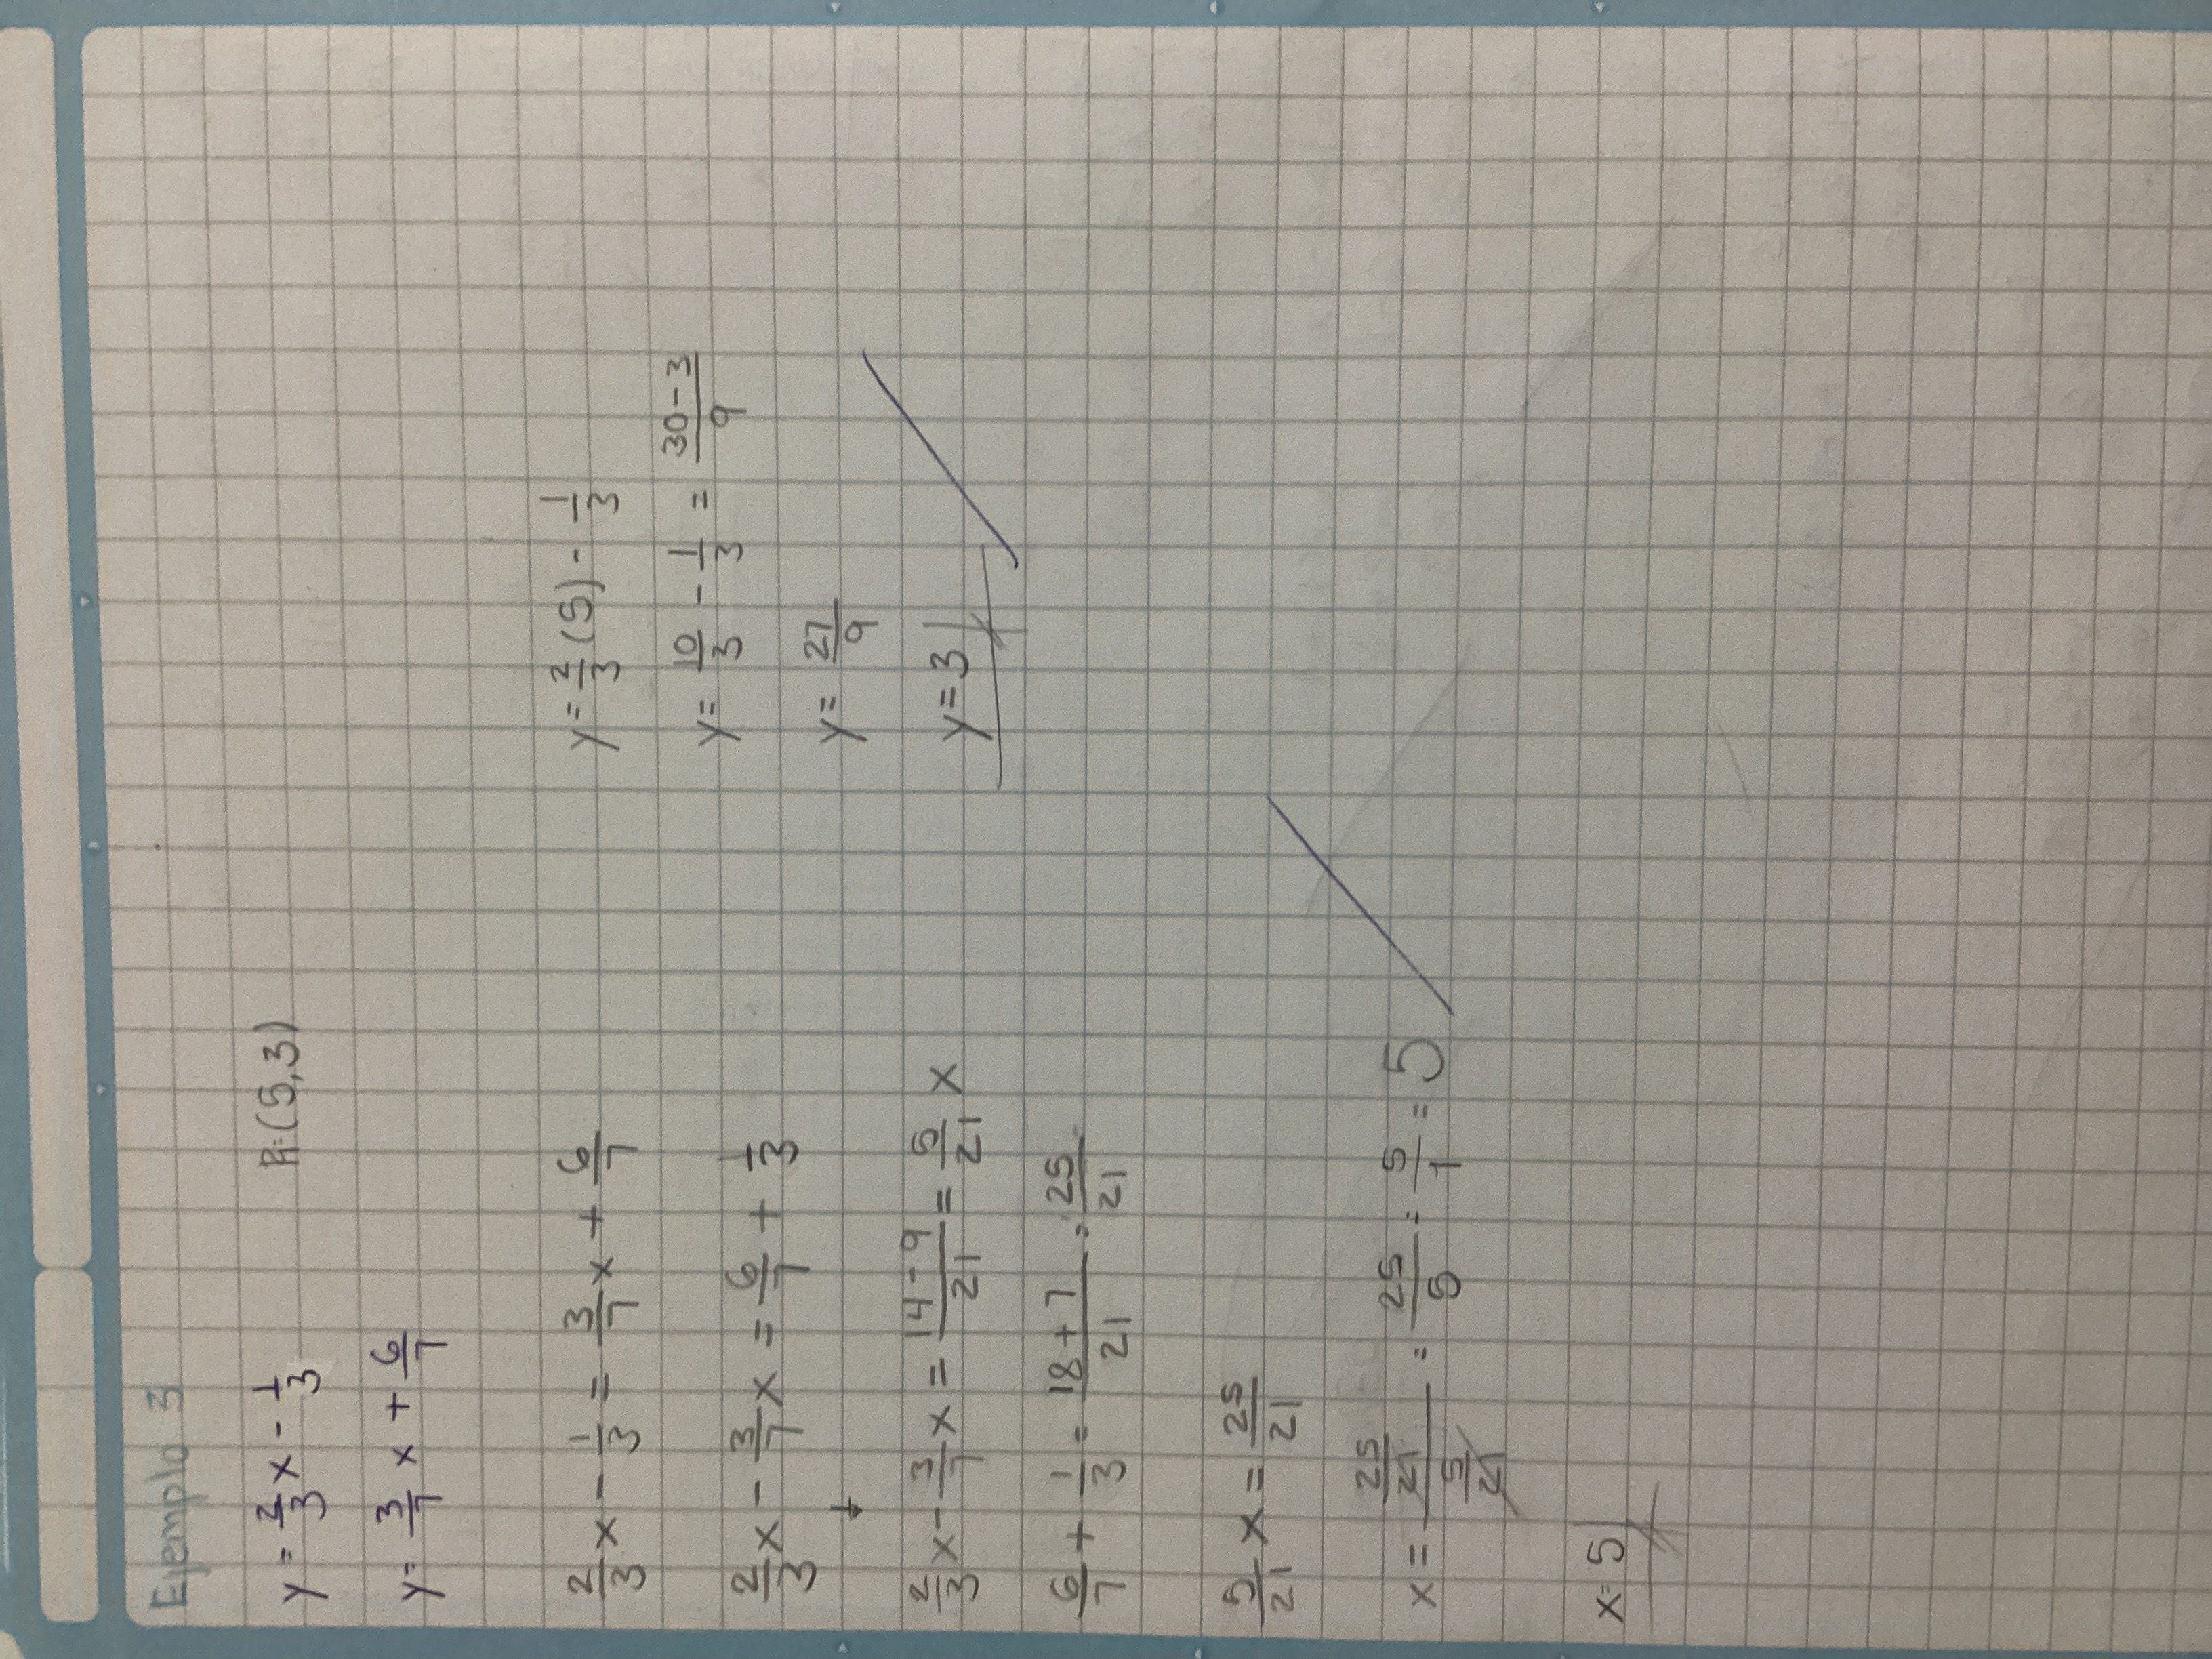 Ejemplo 3
y = 2/3 x - 1/3
R=(5,3)
y = 3/7 x + 6/7
2/3 x - 1/3 = 3/7 x + 6/7
2/3 x - 3/7 x = 6/7 + 1/3
↓
2/3 x - 3/7 x = 14-9/21 = 5/21 x
6/7 + 1/3 = 18+7/21 = 25/21
5/21 x = 25/21
x = 25/21 / 5/21 = 25/5 = 5/1 = 5
x = 5
y = 2/3 (5) - 1/3
y = 10/3 - 1/3 = 30-3/9
y = 27/9
y = 3